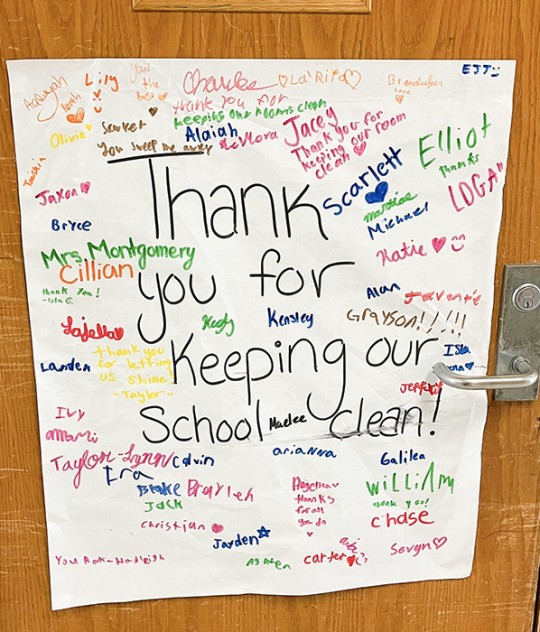 EJT
Lily
You're the best
Charles
La'Rita
Brendulan
Love
Aaliyah
thank you for
keeping our rooms clean
Olivia
Scarlet
You sweep me away
Alaiah
Jacey
Thank you for
keeping our room
clean
Elliot
Thanks
Scarlett
LOGAN
Jaxon
Michael
Bryce
Katie
Thank
Mrs. Montgomery
Cillian
Thank You!
-Isla C.
you for
Alan
Kody
Kensley
GRAYSON!!!!!
Layella
Landen
thank you
for letting
us shine!
-Taylor
Keeping our
Isla
Ivy
School
Maelee
clean!
Amani
Taylor-Lynn
Calvin
arianna
Galilea
Era
Blake
Brayleh
Angelica
thanks
for all
you do
William
thank you!
Jack
chase
Christian
Jayden
Sevyn
Carter
You Rock-Hadleigh